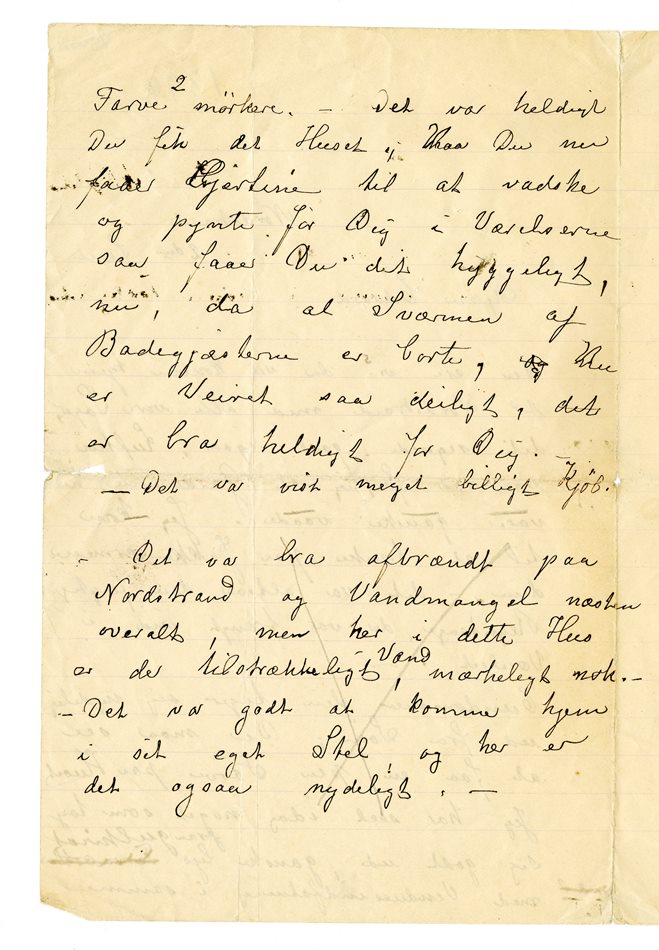 2
Farve mörkere. – Det var heldigt
Du fik det Huset, Naa Du nu
faaer Gjertine til at vadske
og pynte for Dig i Værelserne
saa faaer Du det hyggeligt,
nu, da al Sværmen af
Badegjæsterne er borte, Nu
er Veiret saa deiligt, det
er bra heldigt for Dig. –
– Det var vist meget billigt Kjöb.
– Det var bra afbrændt paa
Nordstrand og Vandmangel næsten
overalt, men her i dette Hus
er der tilstrækkeligt Vand, mærkeligt nok. –
– Det var godt at komme hjem
i sit eget Stel, og her er
det ogsaa nydeligt. –